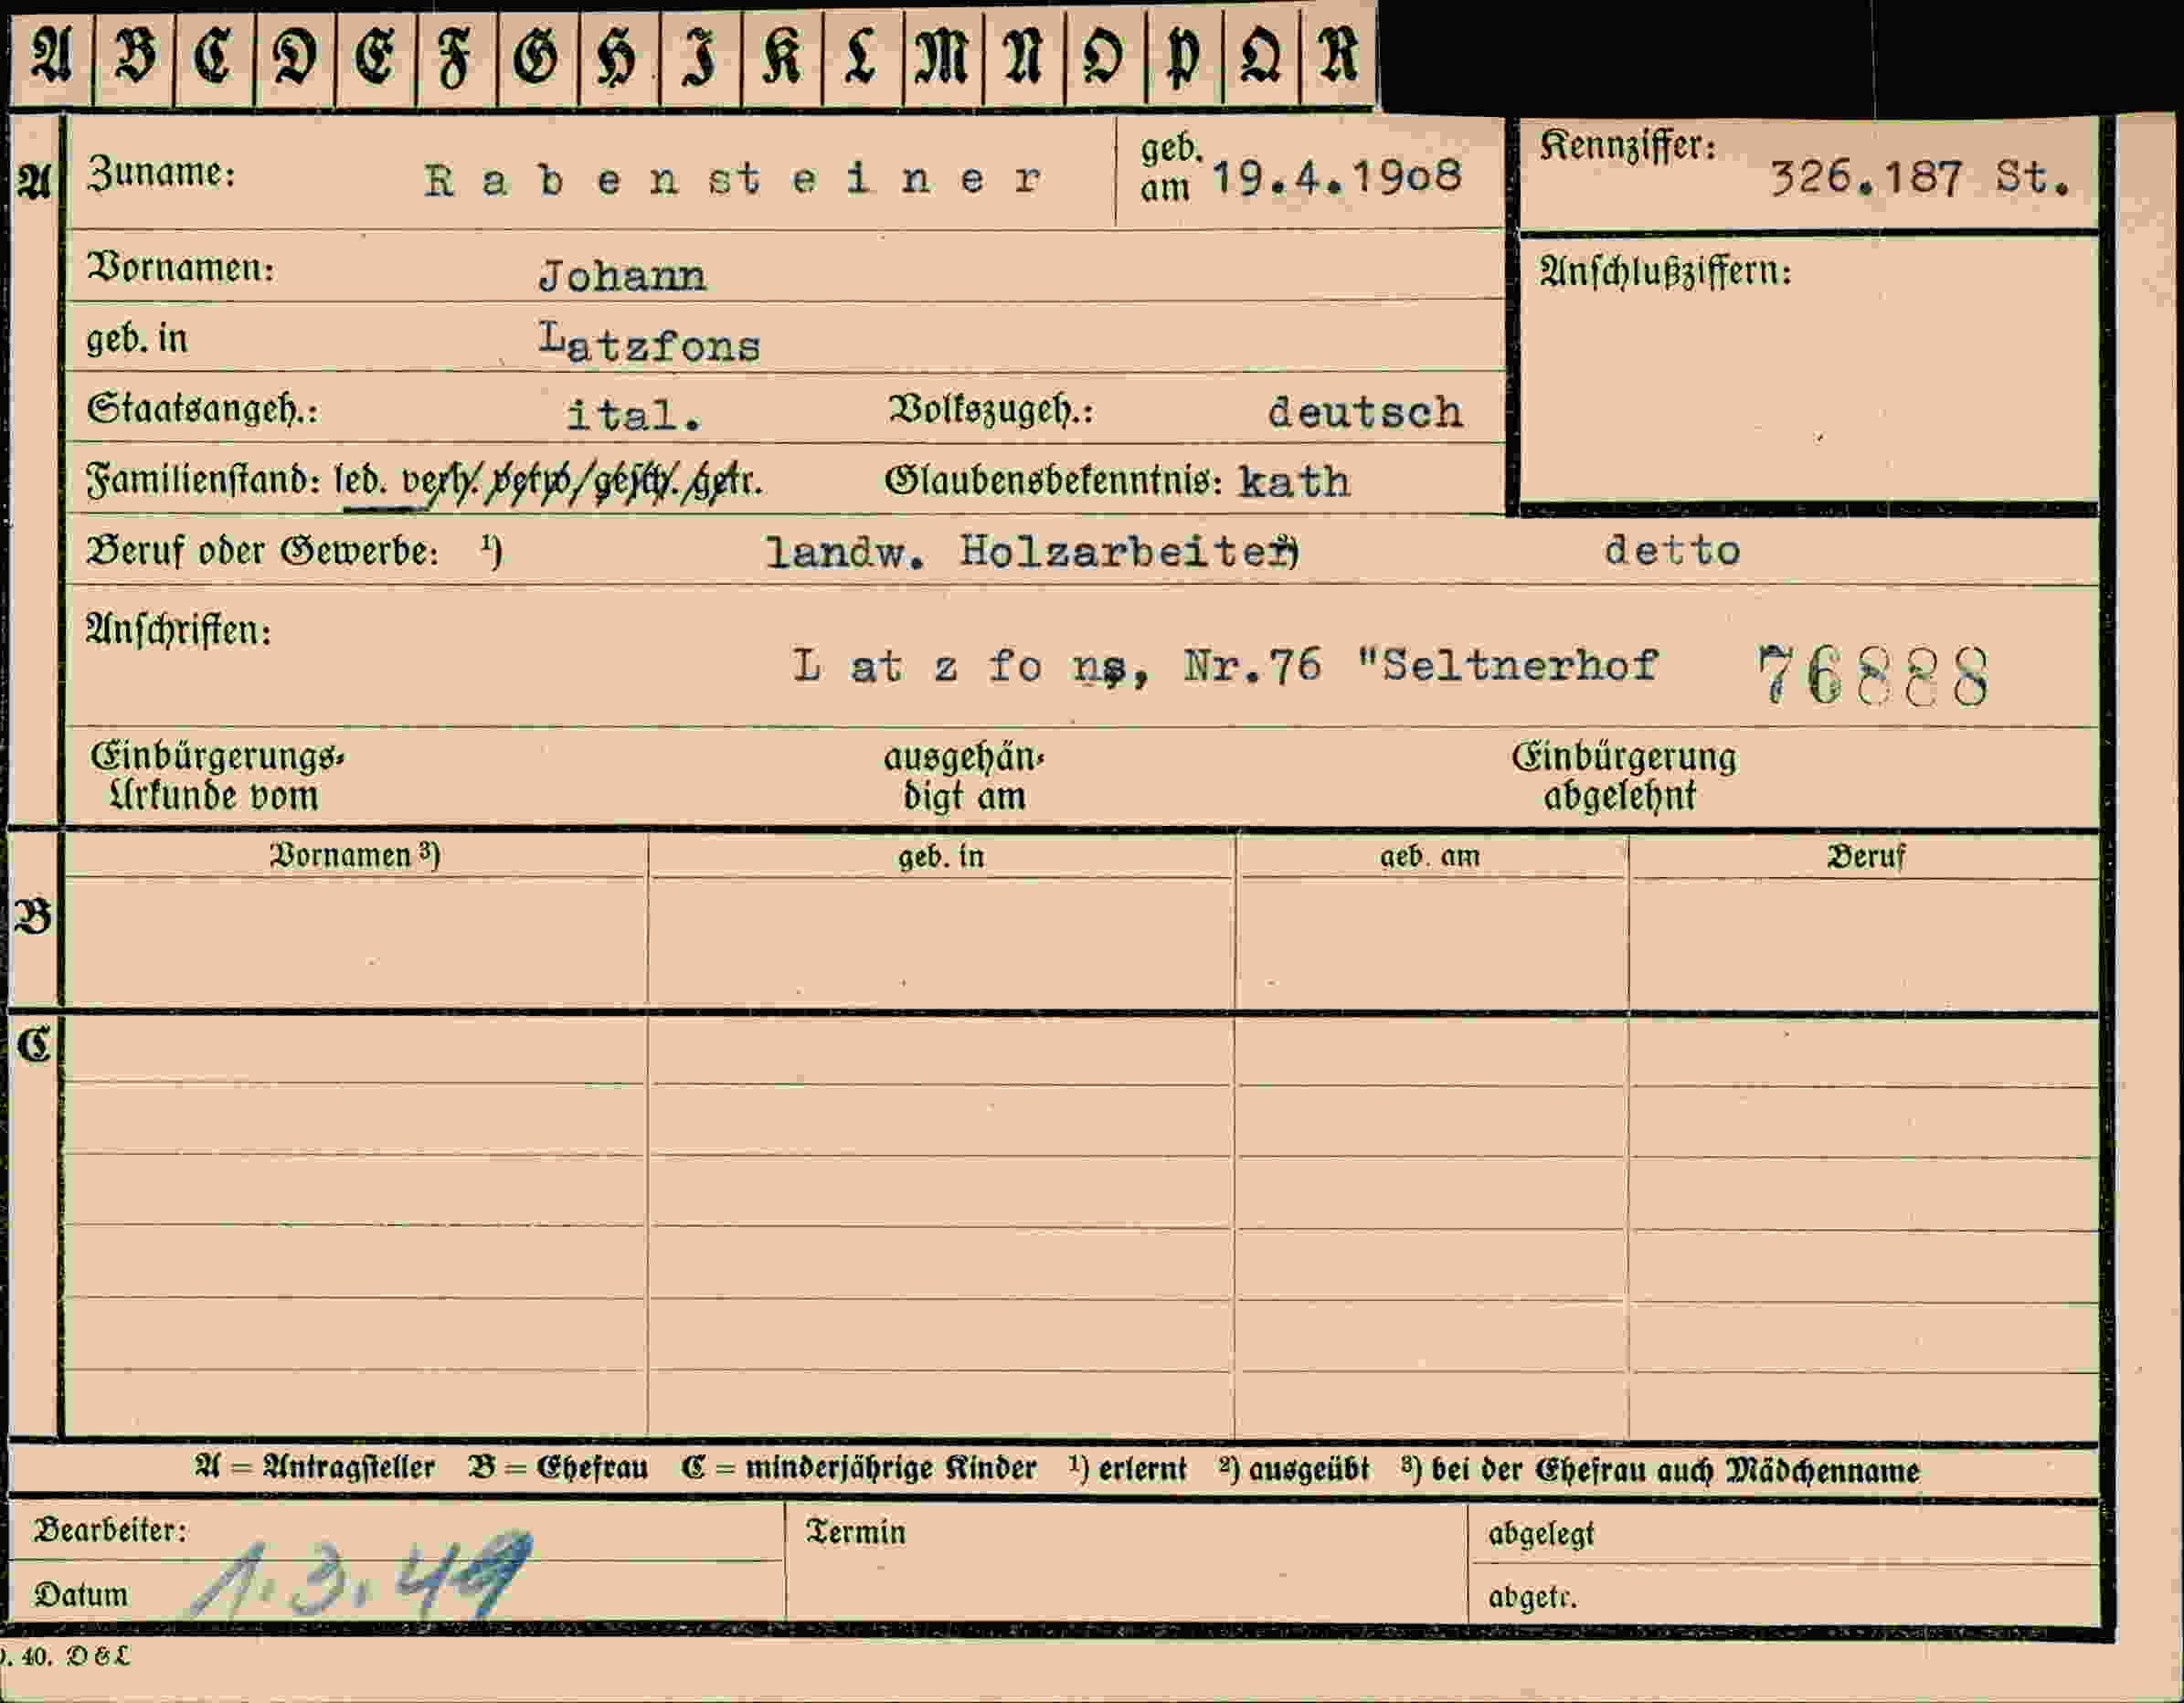 A B C D E F G H I K L M N O P Q R
A Zuname: Rabensteiner geb. am 19.4.19o8 Kennziffer: 326.187 St.
Vornamen: Johann Anschlußziffern:
geb. in Latzfons
Staatsangeh.: ital. Volkszugeh.: deutsch
Familienstand: led. verh. verw. gesch. getr. Glaubensbekenntnis: kath
Beruf oder Gewerbe: ¹) landw. Holzarbeiter ²) detto
Anschriften:
L at z fo ns, Nr.76 "Seltnerhof 76888
Einbürgerungs- ausgehän- Einbürgerung
Urkunde vom digt am abgelehnt
Vornamen ³) geb. in geb. am Beruf
B
C
A = Antragsteller B = Ehefrau C = minderjährige Kinder ¹) erlernt ²) ausgeübt ³) bei der Ehefrau auch Mädchenname
Bearbeiter: Termin abgelegt
Datum 1.3.49 abgetr.
. 40. D & L